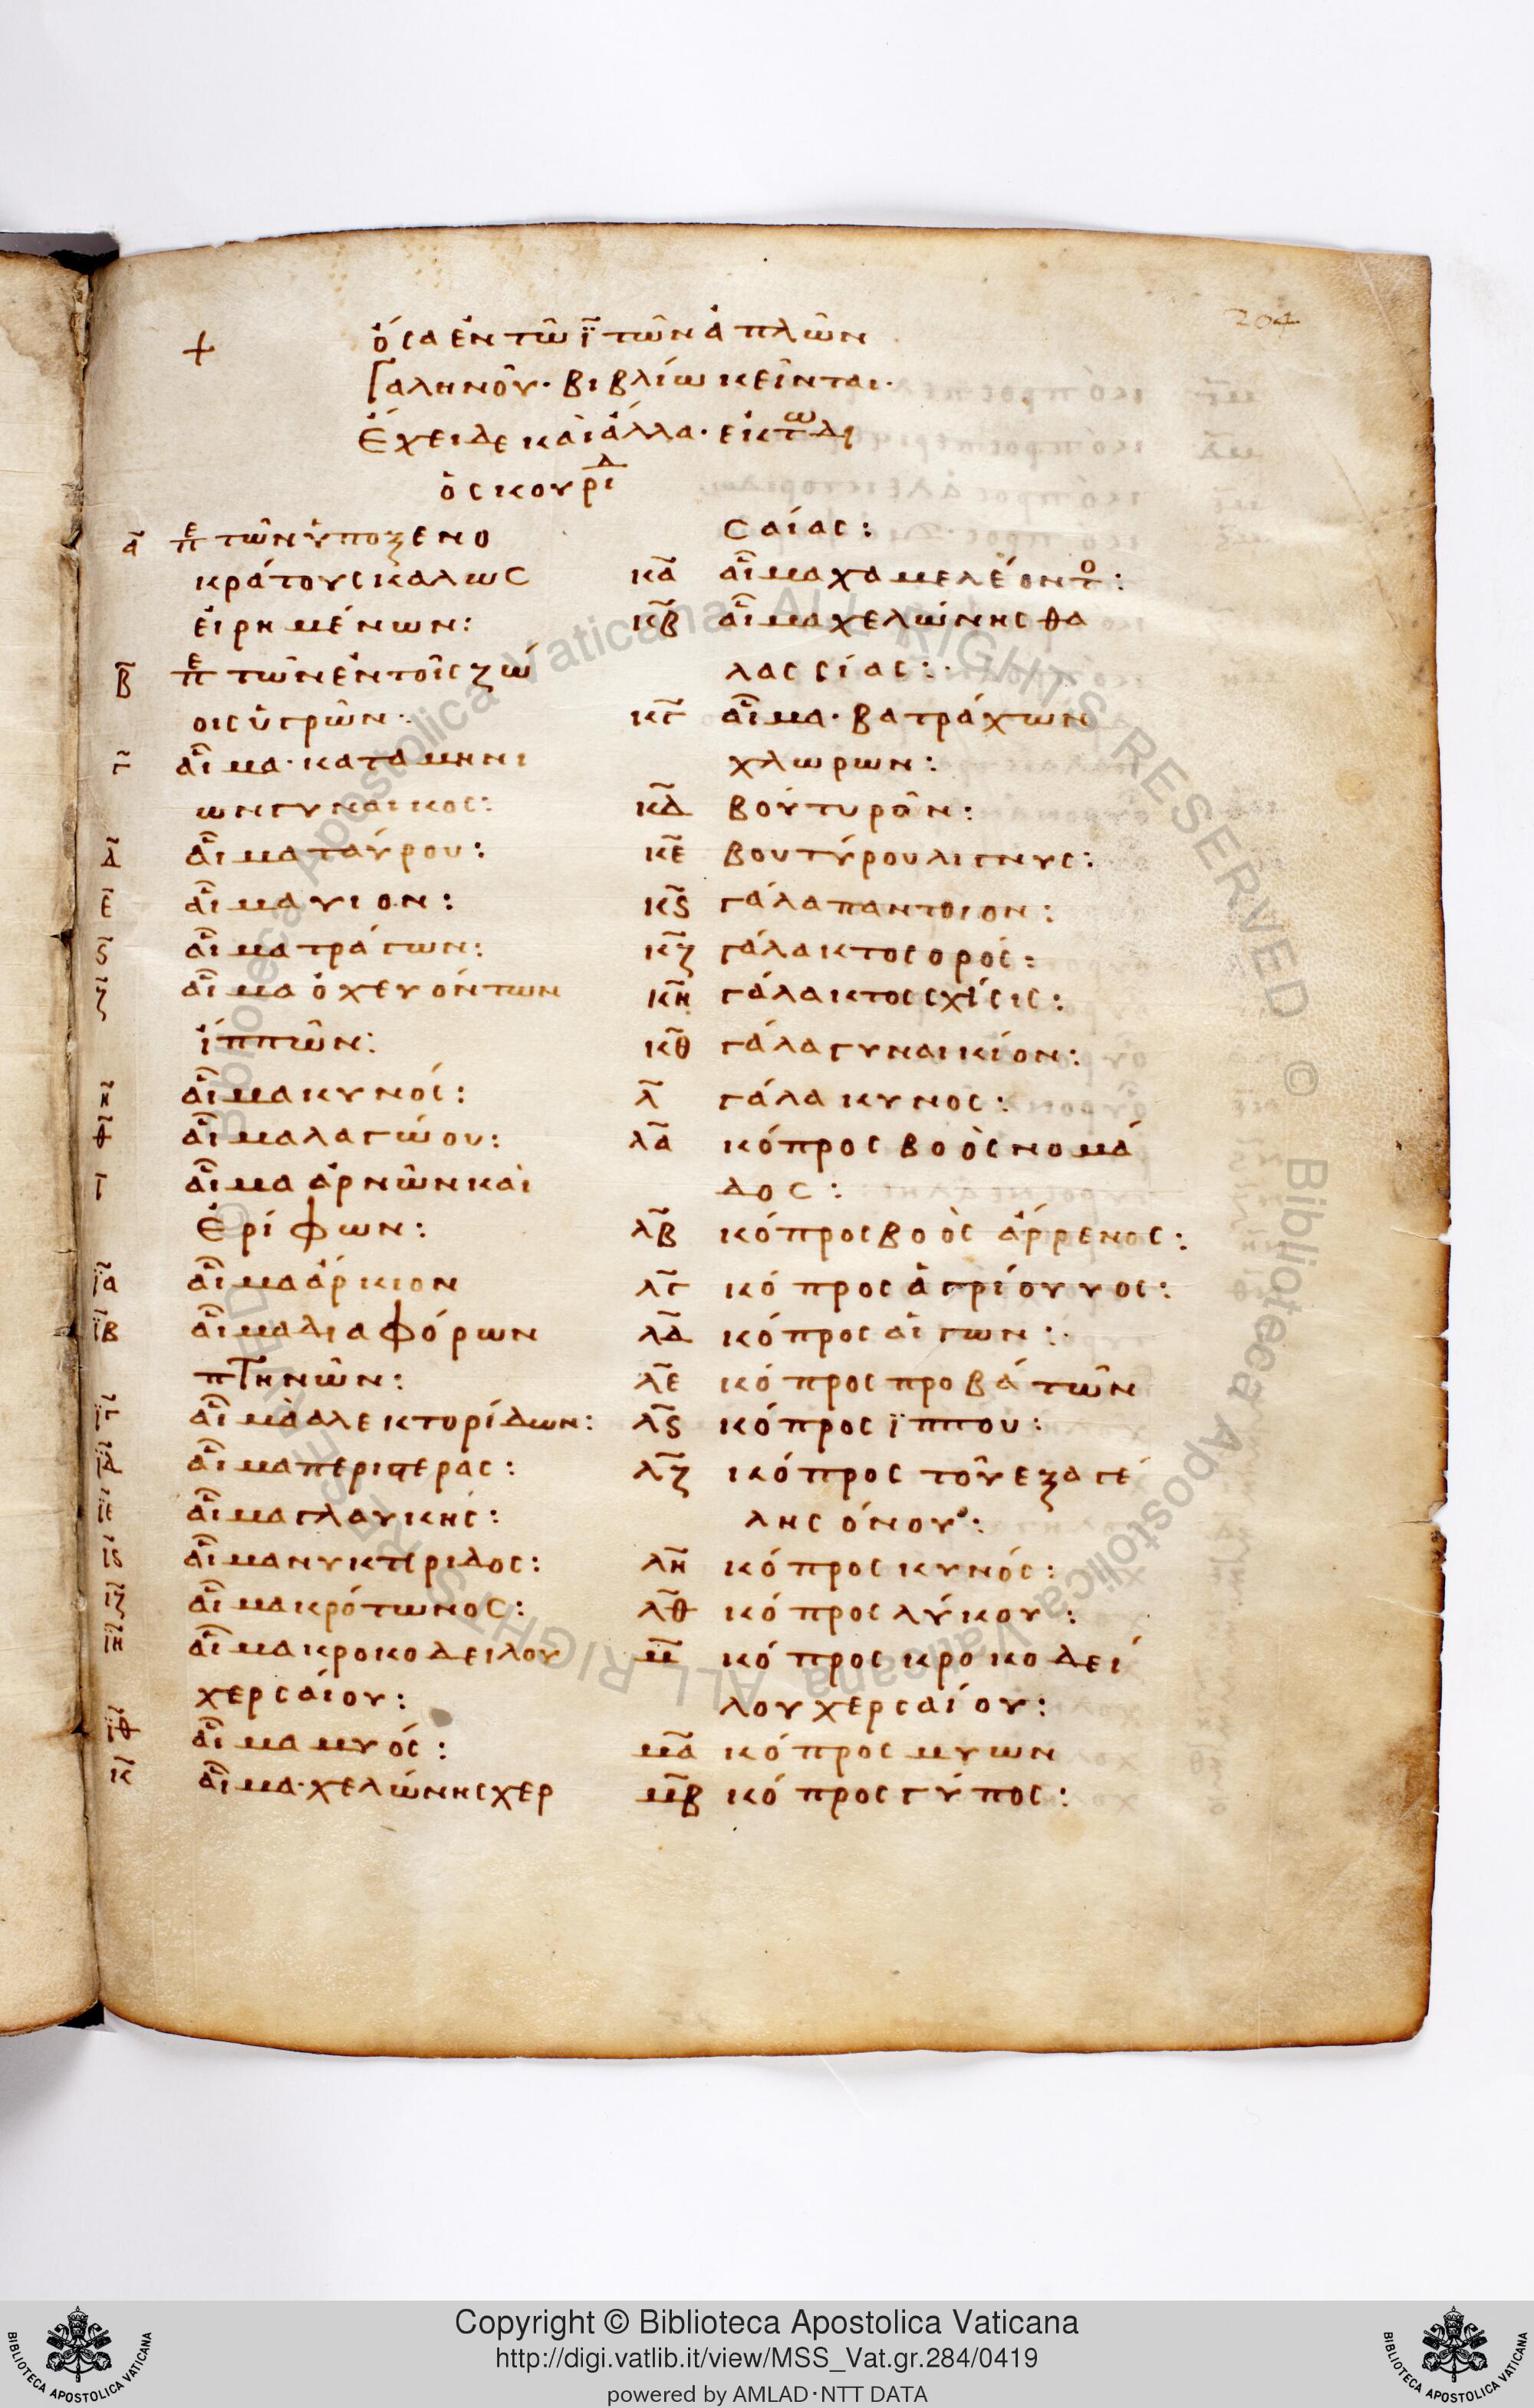 204
+ ὅσα ἐν τῶ ϊ τῶν ἁπλῶν
Γαληνοῦ· βιβλίω κεῖνται·
Ἔχει δε καὶ ἄλλα· ἐκ τω δι
ὀσκουριδ
α πε τῶν ὑπο ξενο
κράτους καλως
εἰρημένων:
β πε τῶν ἐν τοῖς ζώ
οις ὑγρῶν:
γ αἷμα· καταμηνι
ων γυναικος:
δ αἷμα ταύρου:
ε αἷμα υιον:
ς αἷμα τράγων:
ζ αἷμα ὀχευόντων
ἵππων:
η αἷμα κυνός:
θ αἷμα λαγώου:
ι αἷμα ἀρνῶν καὶ
ἐρίφων:
ια αἷμα ἄρκιον
ιβ αἷμα διαφόρων
πτηνῶν:
ιγ αἷμα ἀλεκτορίδων:
ιδ αἷμα περιστεράς:
ιε αἷμα γλαυκής:
ις αἷμα νυκτεριδος:
ιζ αἷμα κρότωνος:
ιη αἷμα κροκοδειλου
χερσαίου:
ιθ αἷμα μυός:
κ αἷμα· χελώνης χερ
σαίας:
κα αἷμα χαμελέοντο:
κβ αἷμα χελώνης θα
λασσίας:
κγ αἷμα· βατράχων
χλωρων:
κδ βούτυρον:
κε βουτύρου λιγνυς:
κς γάλα παντοιον:
κζ γάλακτος ορός:
κη γάλακτος σχίσις:
κθ γάλα γυναικίον:
λ γάλα κυνος:
λα κόπρος βοὸς νομά
δος:
λβ κόπρος βοὸς ἄρρενος:
λγ κόπρος ἀγρίου υος:
λδ κόπρος αἰγων:
λε κόπρος προβάτων
λς κόπρος ϊππου:
λζ κόπρος τοῦ εξ αγέ
λης όνου:
λη κόπρος κυνός:
λθ κόπρος λύκου:
μ κόπρος κροκοδεί
λου χερσαίου:
μα κόπρος μυων
μβ κόπρος γύπος:
Copyright © Biblioteca Apostolica Vaticana
http://digi.vatlib.it/view/MSS_Vat.gr.284/0419
powered by AMLAD·NTT DATA
BIBLIOTECA APOSTOLICA VATICANA
BIBLIOTECA APOSTOLICA VATICANA
© Biblioteca Apostolica Vaticana ALL RIGHTS RESERVED © Biblioteca Apostolica Vaticana ALL RIGHTS RESERVED